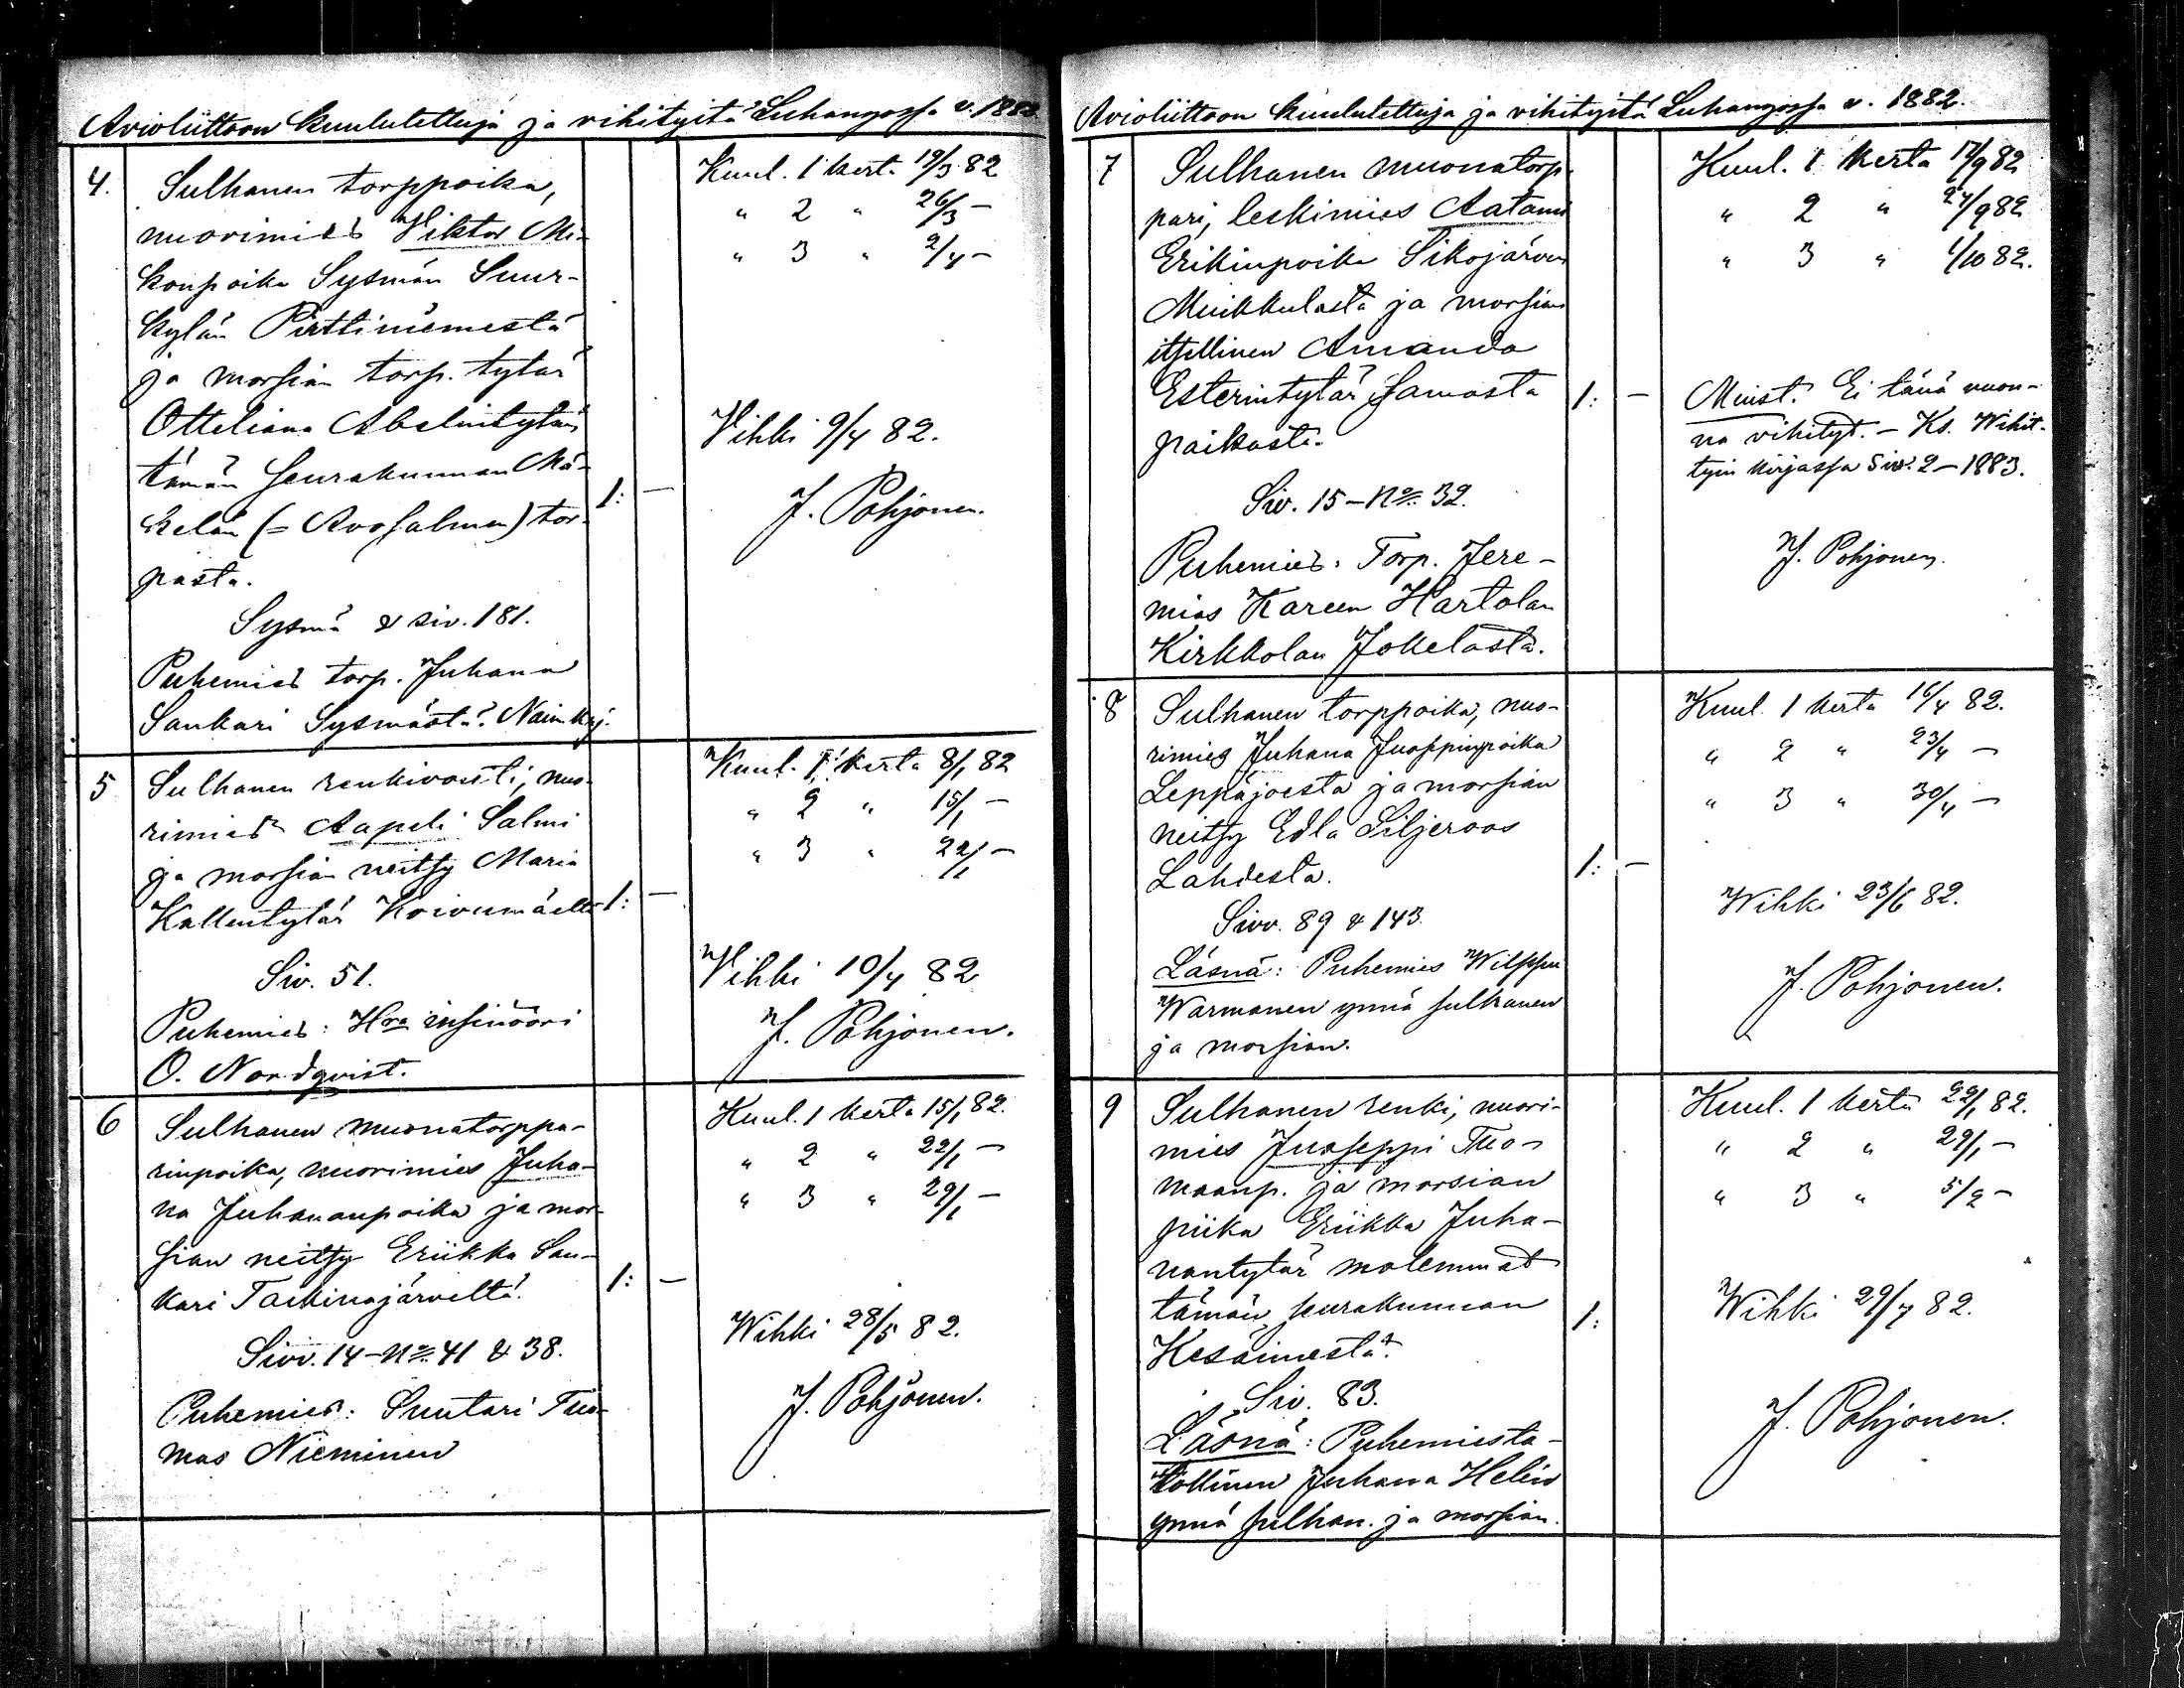 Avioliittoon kuulutettuja ja vihityitä Luhangossa v. 1882.
4.
Sulhanen torppoika,
nuorimies Viktor Mi-
konpoika Sysmän Suur-
kylän Pirttiniemestä
ja morsian torp. tytär
Otteliana Abelintytär
tämän seurakunnan Mä-
kelän (= Avosalmen) tor-
pasta.
Sysmä & siv. 181.
Puhemies torp. Juhana
Sankari Sysmästä. Naim. kirj.
1: —
Kuul. 1 kert. 19/3 82
" 2 " 26/3 —
" 3 " 2/4 —
Vihki 9/4 82.
J. Pohjonen.
5
Sulhanen renkivouti, nuo-
rimies Aapeli Salmi
ja morsian neitsy Maria
Kallentytär Koivumäeltä
Siv. 51.
Puhemies: Hra insinööri
O. Nordqvist.
1: —
Kuul. 1 kerta 8/1 82
" 2 " 15/1 —
" 3 " 22/1 —
Vihki 10/4 82
J. Pohjonen.
6
Sulhanen muonatorppa-
rinpoika, nuorimies Juha-
na Juhananpoika ja mor-
sian neitsy Eriikka San-
kari Tarkinajärveltä.
Sivv. 14 – No 41 & 38.
Puhemies: Suutari Tuo-
mas Nieminen
1: —
Kuul. 1 kerta 15/1 82.
" 2 " 22/1 —
" 3 " 29/1 —
Wihki 28/5 82.
J. Pohjonen.
Avioliittoon kuulutettuja ja vihityitä Luhangossa v. 1882.
7
Sulhanen muonatorp-
pari, leskimies Aatami
Erikinpoika Sikojärven
Muikkulasta ja morsian
itsellinen Amanda
Esterintytär samasta
paikasta.
Siv. 15 – No 32.
Puhemies: Torp. Jere-
mias Kareen Hartolan
Kirkkolan Jokelasta.
1: —
Kuul. 1 kerta 17/9 82
" 2 " 24/9 82
" 3 " 1/10 82.
Muist. Ei tänä vuon-
na vihityt. – Ks. Wihit-
tyin kirjassa siv. 2 – 1883.
J. Pohjonen.
8
Sulhanen torppoika, nuo-
rimies Juhana Juoppinpoika
Leppäjoesta ja morsian
neitsy Edla Siljeroos
Lahdesta.
Sivv. 89 & 143.
Läsnä: Puhemies Wilppu
Warmanen ynnä sulhanen
ja morsian.
1: —
Kuul. 1 kerta 16/4 82.
" 2 " 23/4 —
" 3 " 30/4 —
Wihki 23/6 82.
J. Pohjonen.
9
Sulhanen renki, nuori-
mies Juoseppi Tuo-
maanp. ja morsian
piika Eriikka Juha-
nantytär molemmat
tämän seurakunnan
Kesäimestä.
Siv. 83.
Läsnä: Puhemies ta-
lollinen Juhana Helin
ynnä sulhan. ja morsian.
1:
Kuul. 1 kerta 22/1 82.
" 2 " 29/1 —
" 3 " 5/2 —
Wihki 29/7 82.
J. Pohjonen.